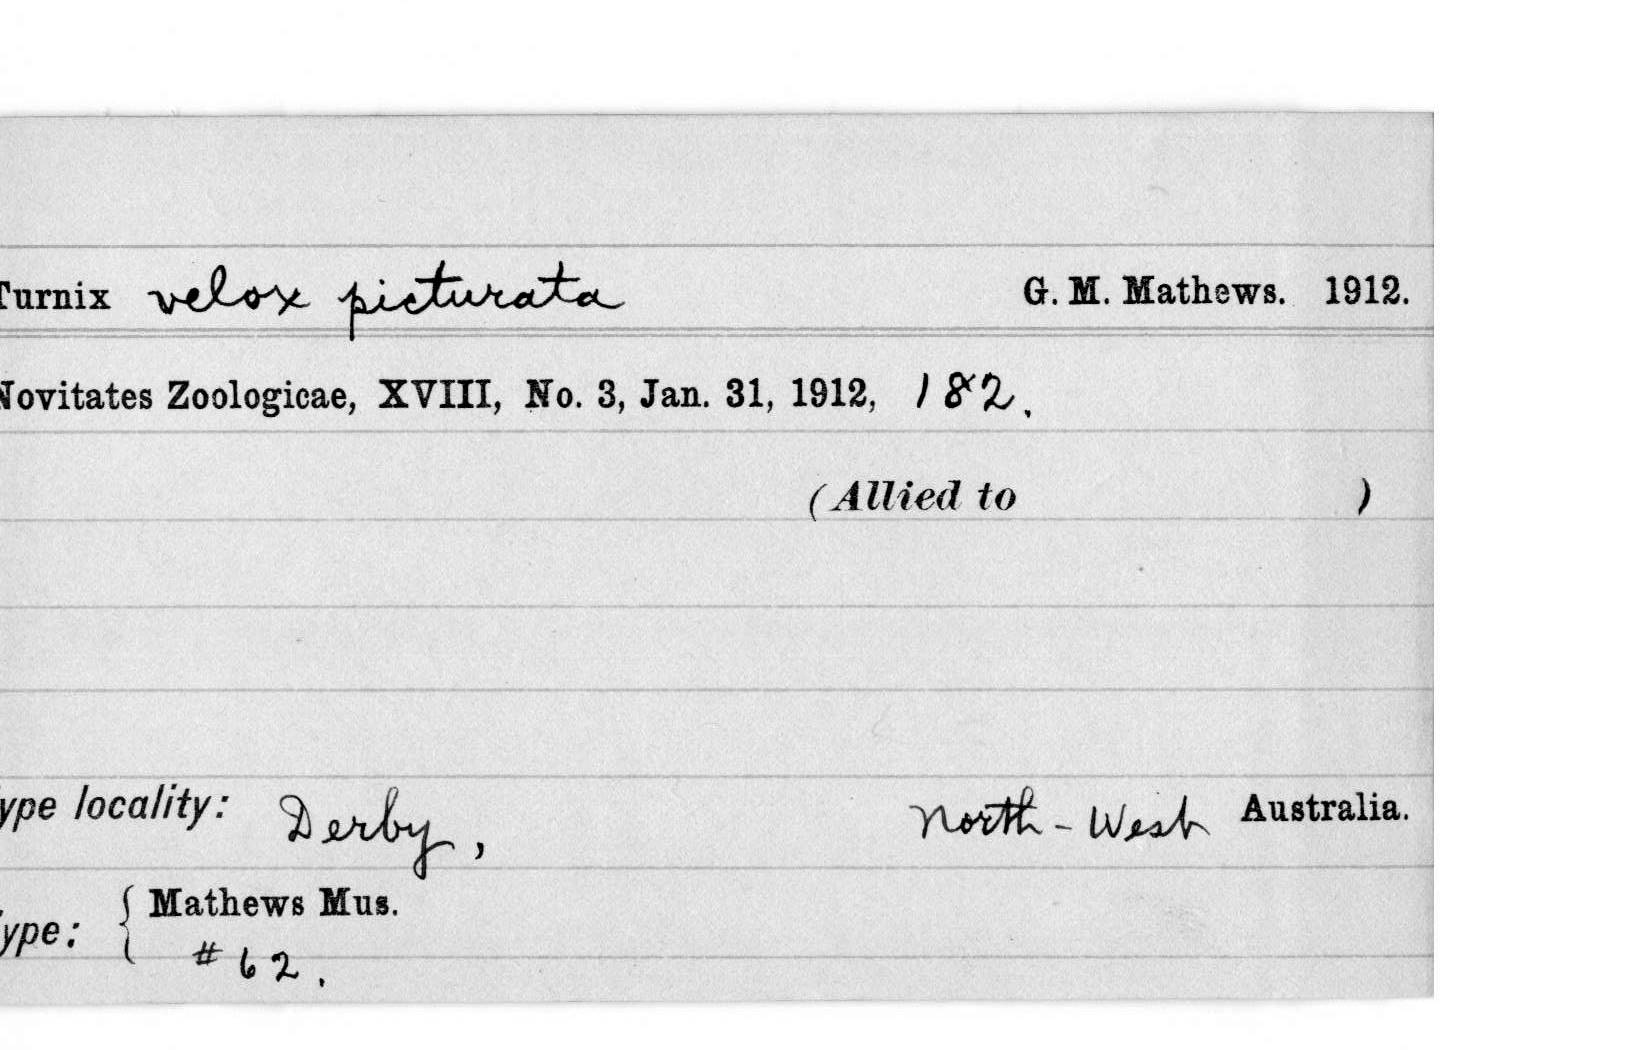 Turnix velox picturata G. M. Mathews. 1912.
Novitates Zoologicae, XVIII, No. 3, Jan. 31, 1912, 182.
(Allied to )
ype locality: Derby, North-West Australia.
ype: { Mathews Mus.
# 62.